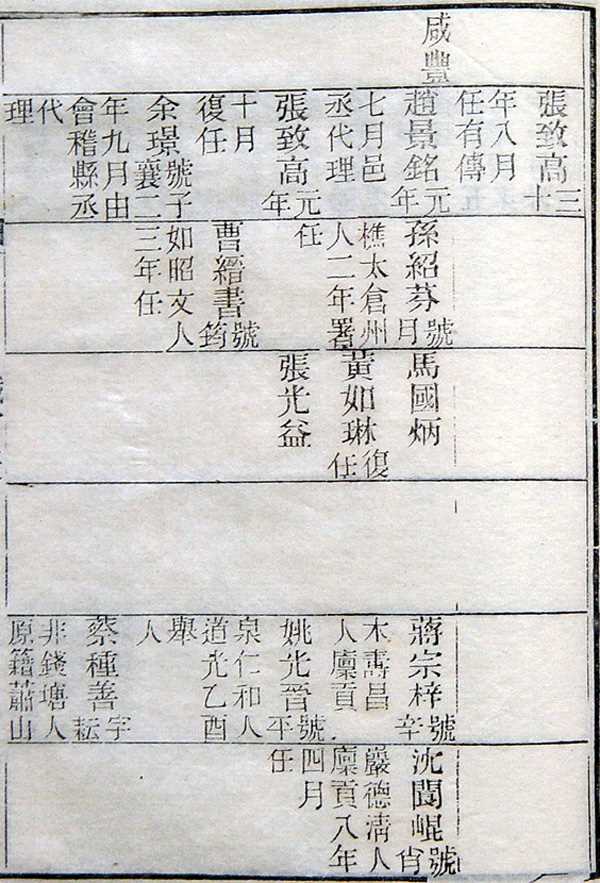 咸豐
張致高三十
年八月
任有傳
趙景銘元年
七月邑
丞代理
張致高元年
十月
復任
余璟號子襄二
年九月由
會稽縣丞
代
理
孫紹芬號月
樵太倉州
人二年署
任
曹縉書號筠
如昭文人
三年任
馬國炳
黃如琳復任
張光益
蔣宗梓號辛
木壽昌
人廩貢
姚光晉號平
泉仁和人
道光乙酉
舉
人
蔡種善字耘
非錢塘人
原籍蕭山
沈閬崐號肖
巖德清人
廩貢八年
四月
任